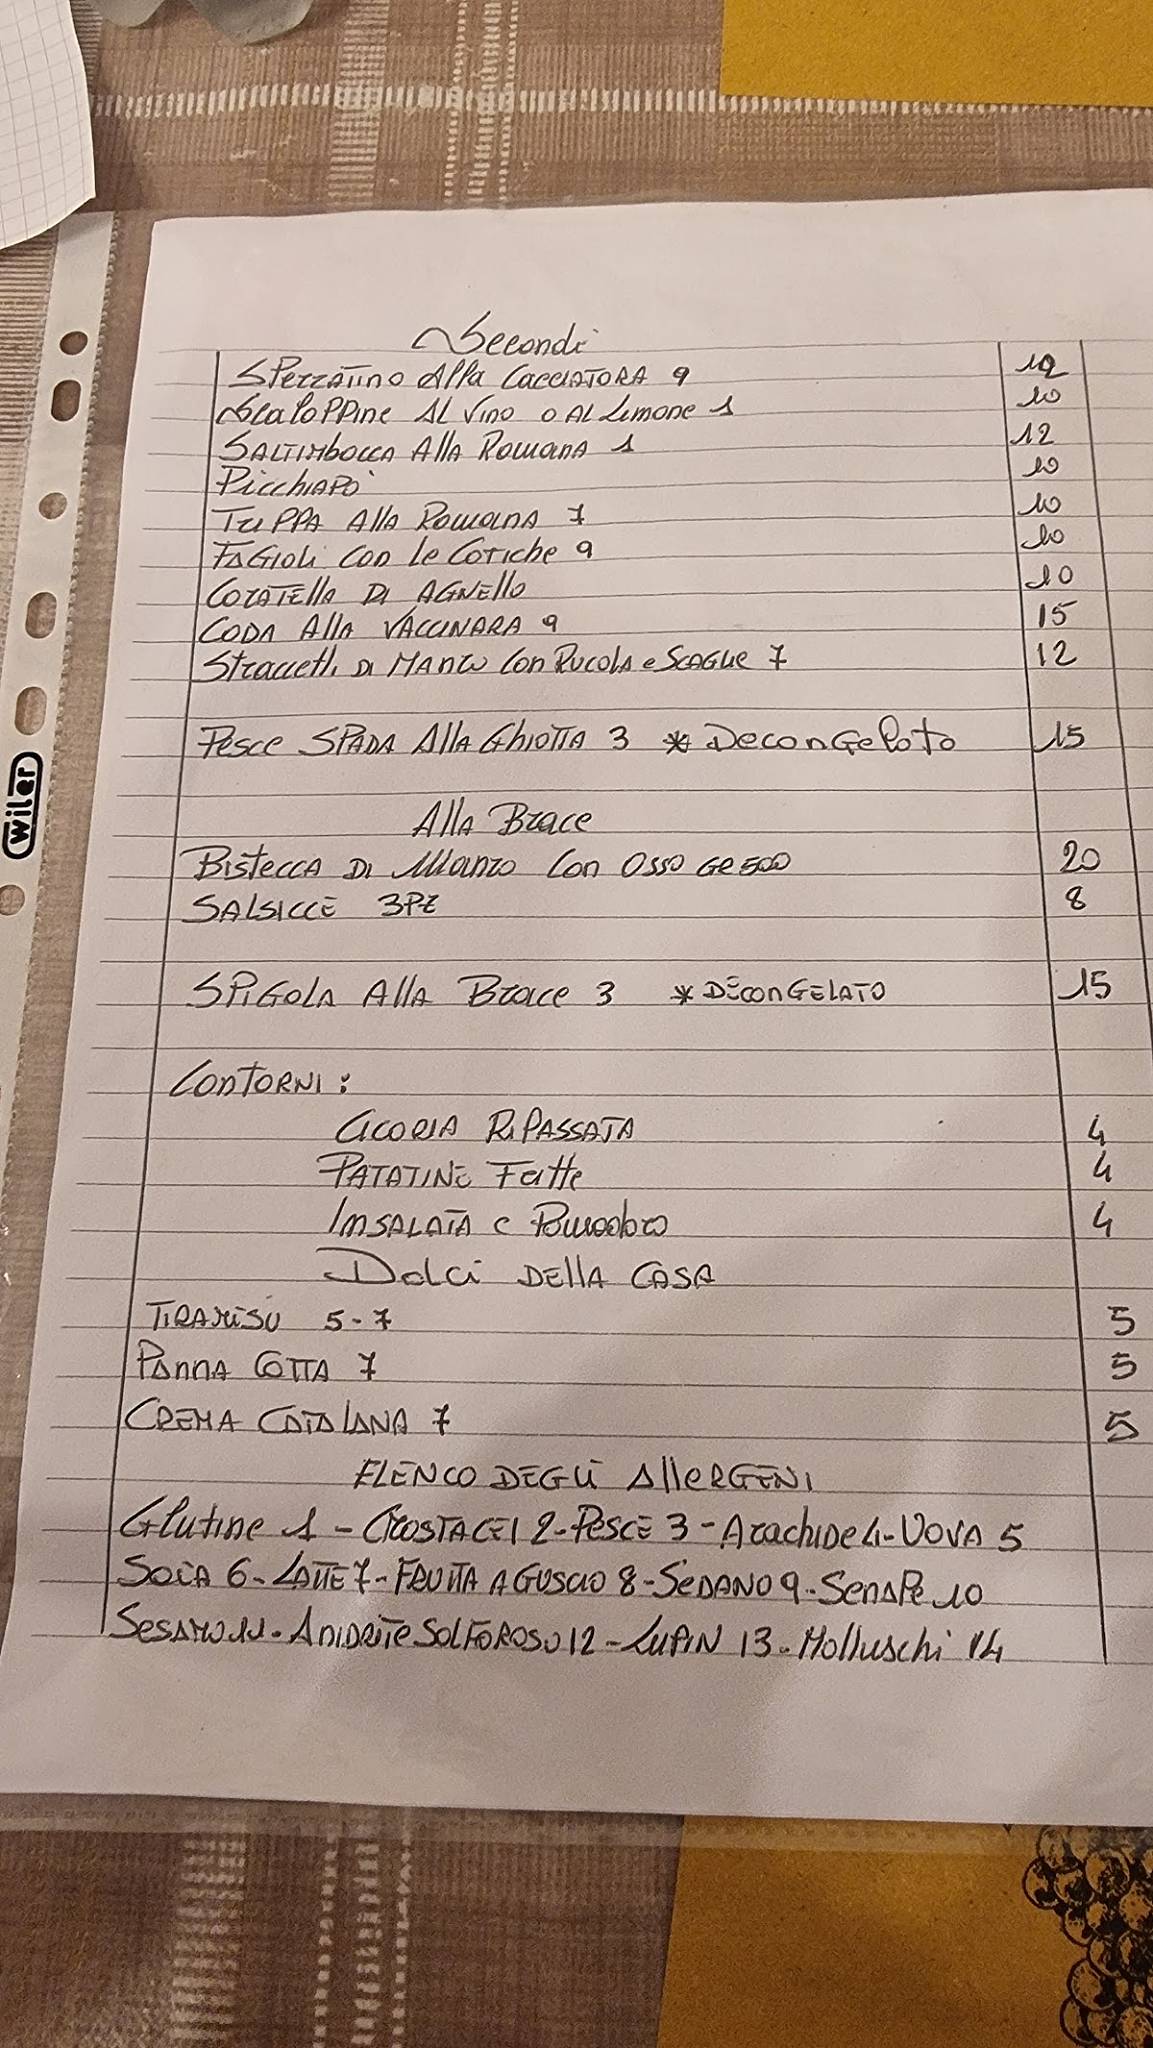 Secondi
Spezzatino alla Cacciatora 9 12
Scaloppine al Vino o al Limone 1 10
Saltimbocca alla Romana 1 12
Picchiapò 10
Trippa alla Romana 7 10
Fagioli con le Cotiche 9 10
Coratella di Agnello 10
Coda alla Vaccinara 9 15
Straccetti di Manzo con Rucola e Scaglie 7 12
Pesce Spada alla Ghiotta 3 * Decongelato 15
Alla Brace
Bistecca di Manzo con Osso Gr 500 20
Salsicce 3Pz 8
Spigola alla Brace 3 * Decongelato 15
Contorni:
Cicoria Ripassata 4
Patatine Fritte 4
Insalata e Pomodoro 4
Dolci della Casa
Tiramisu 5-7 5
Panna Cotta 7 5
Crema Catalana 7 5
Elenco degli Allergeni
Glutine 1 - Crostacei 2 - Pesce 3 - Arachide 4 - Uova 5
Soia 6 - Latte 7 - Frutta a Guscio 8 - Sedano 9 - Senape 10
Sesamo 11 - Anidrite Solforoso 12 - Lupin 13 - Molluschi 14
wiler